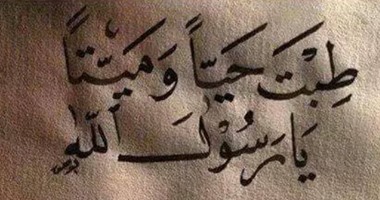 طِبْتَ حَيّاً وَمَيّتاً
يَا رَسُوْلَ اللّٰهِ